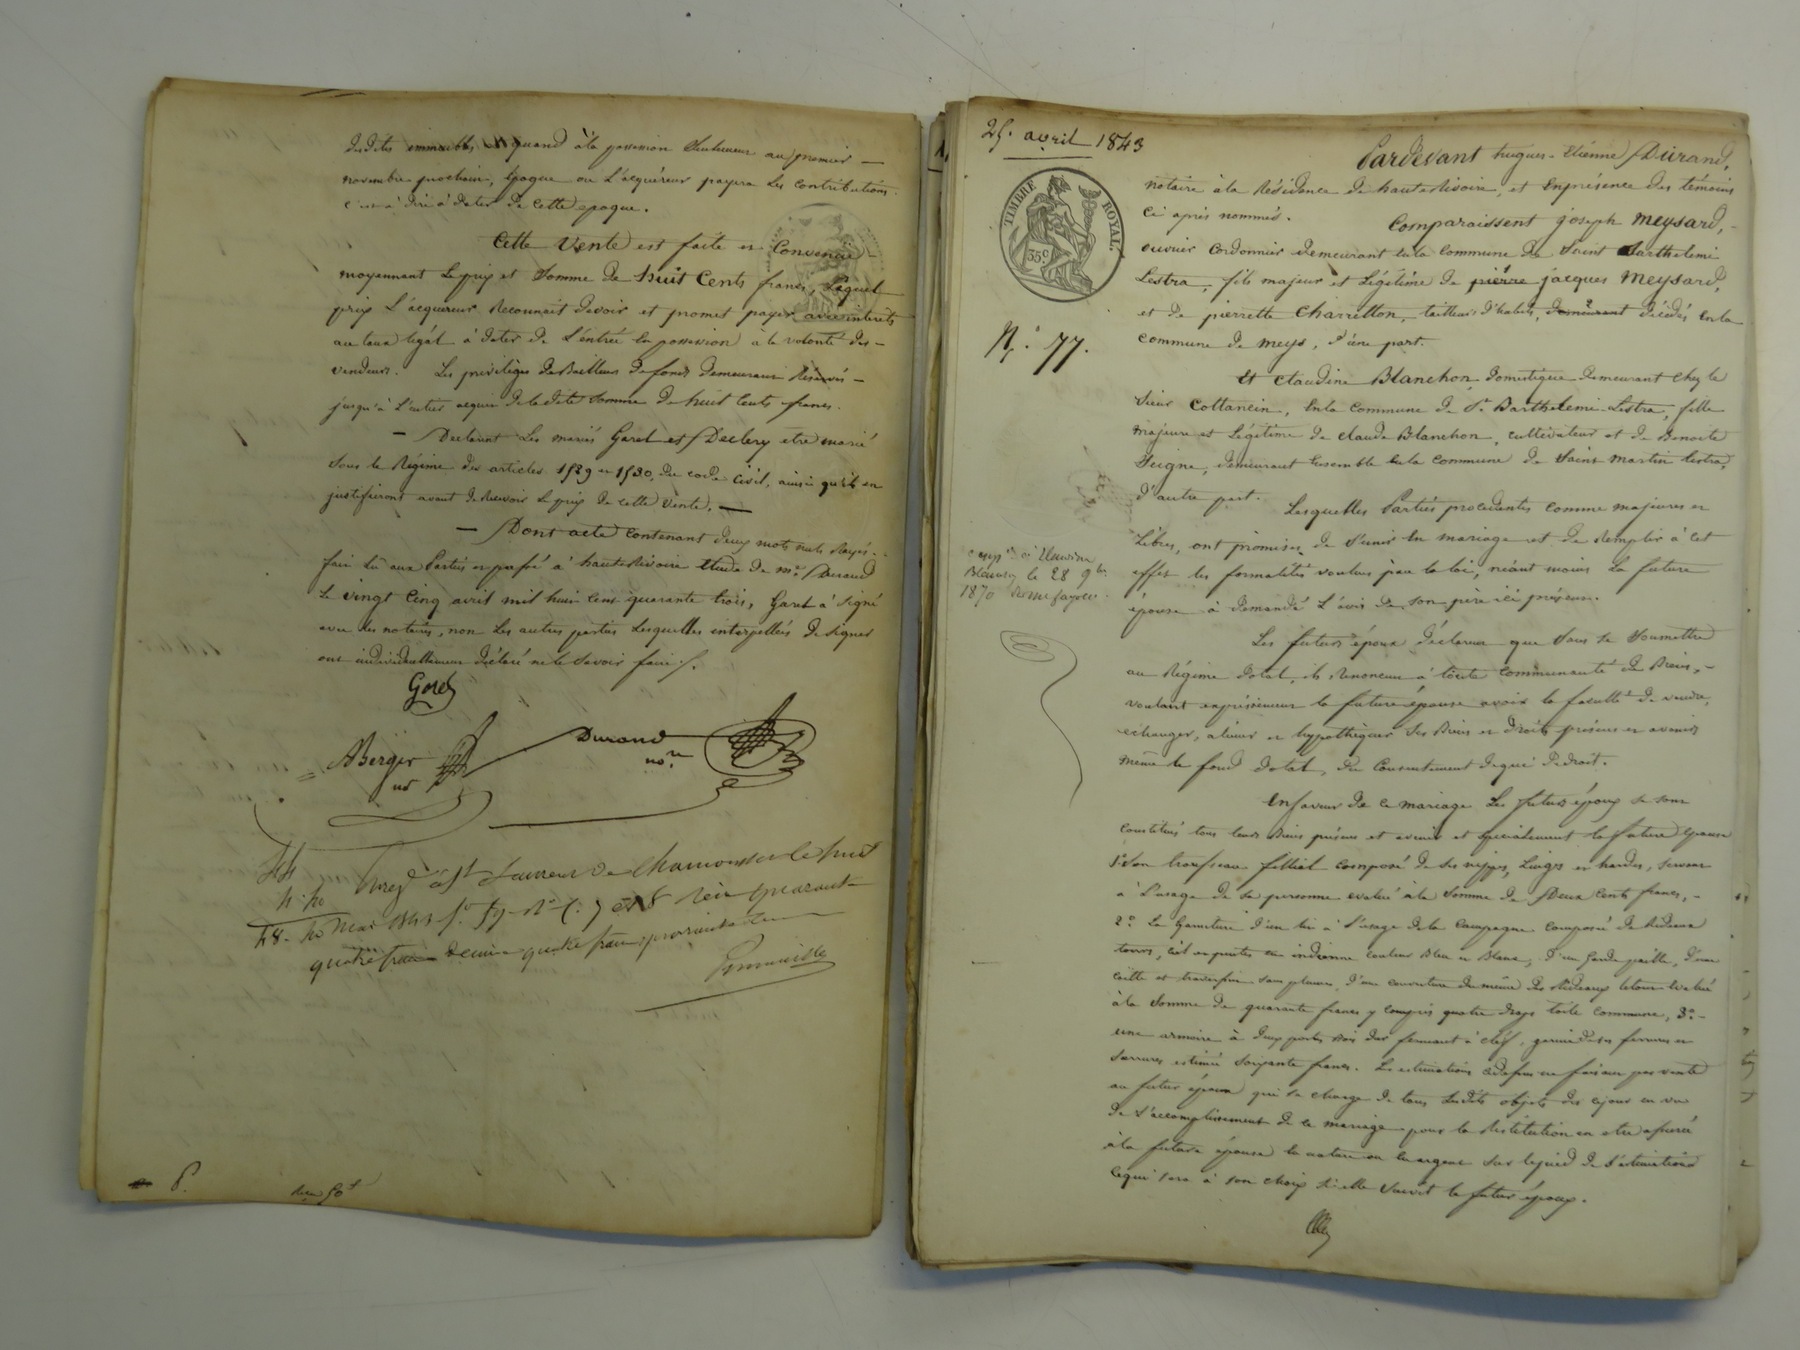 desdits immeubles et quand à la possession seulement au premier —
novembre prochain, époque ou l'acquéreur payera les contributions.
c'est à dire à dater de cette époque.
Cette Vente est faite et Convenue
moyennant le prix et Somme de huit Cents francs, Lequel
prix L'acquereur Reconnait devoir et promet payer avec interets
au taux légal à dater de L'entrée en possession à la volonté des —
vendeurs. Les privilèges de Bailleurs de fonds demeurant Réservés —
jusqu'à L'entier acquit de ladite Somme de huit Cents francs.
— Declarent Les mariés Garel et Declery etre marié
Sous le Régime des articles 1529 et 1530, du code Civil, ainsi qu'ils en
justifieront avant de Recevoir le prix de cette Vente. —
— Dont acte Contenant deux mots nuls Rayés.
fait Lu aux Parties et passé à hauterivoire Etude de me. Durand
Le vingt Cinq avril mil huit Cent quarante trois, Garel à Signé
avec les notaires, non Les autres parties Lesquelles interpellées de Signer
ont individuellement déclaré ne le Savoir faire /.
Garel
ABerger
nre
Durand
nore.
44
4. 40
48- 40
Enregé à St Laurent de Chamousset le huit
mai 1843 fo. 59 Ro C. 7 et 8 Reçu quarante
quatre francs decime quatre francs quarante
6.
25. avril 1843
TIMBRE ROYAL.
35c
No. 77.
Pardevant hugues-Etienne Durand,
notaire à la Résidence de hauterivoire, et En présence des témoins
Ci après nommés.
Comparaissent joseph Meysard,
ouvrier Cordonnier demeurant En la commune de Saint Barthelemi
Lestra, fils majeur et Légitime de pierre jacques Meysard,
et de pierrette Charretton, tailleur d'habits, demeurant décédés En la
commune de meys, d'une part.
Et Claudine Blanchon, domestique demeurant chez le
Sieur Cottancin, En la Commune de St. Barthelemi-Lestra, fille
majeure et Légitime de claude Blanchon, cultivateur et de Benoite
Seigne, demeurant Ensemble En la commune de Saint Martin Lestra,
d'autre part.
Lesquelles Parties procédantes comme majeures et
Libres, ont promises de S'unir En mariage et de Remplir à Cet
effet les formalités voulues par la loi, néant moins La future
épouse à demandé L'avis de Son père ici présent.
Les futurs époux déclarent que Sans Se Soumettre
au Régime dotal, ils Renoncent à toute Communauté de Biens, —
voulant expressément la future épouse avoir la faculté de vendre,
echanger, aliéner et hypothéquer Ses Biens et Droits présens et avenir
même le fond dotal, du Consentement de qui de droit.
En faveur de ce mariage Les futurs époux Se Sont
Constitués tous leurs Biens présens et avenir et specialement la future épouse
1o Son trousseau filial composé de Ses nippes, Linges et hardes, Servant
à L'usage de Sa personne evalué à la Somme de Deux Cents francs, —
2o. La Garniture d'un lit à L'usage de la Campagne Composée de Rideaux
tours, Ciel et pentes en indienne couleur Bleu et Blanc, d'un Garde paille, d'une
Coitte et traversin Sans plumes, d'une couverture du même des Rideaux le tout évalué
à la Somme de quarante francs y compris quatre draps toile Commune, 3o. —
une armoire à deux portes Bois dur fermant à clef, garnie de ses ferrures et
Serrures estimée Soixante francs. Les estimations cidessus ne faisant pas vente
au futur époux qui Se charge de tous Lesdits objets dès cejour en vu
de L'accomplissement de ce mariage pour la Restitution en etre assurée
à la future épouse En nature ou En argent Sur lepied de L'estimation
Cequi Sera à Son choix Si elle Survit le futur époux.
le 28 9bre
1870